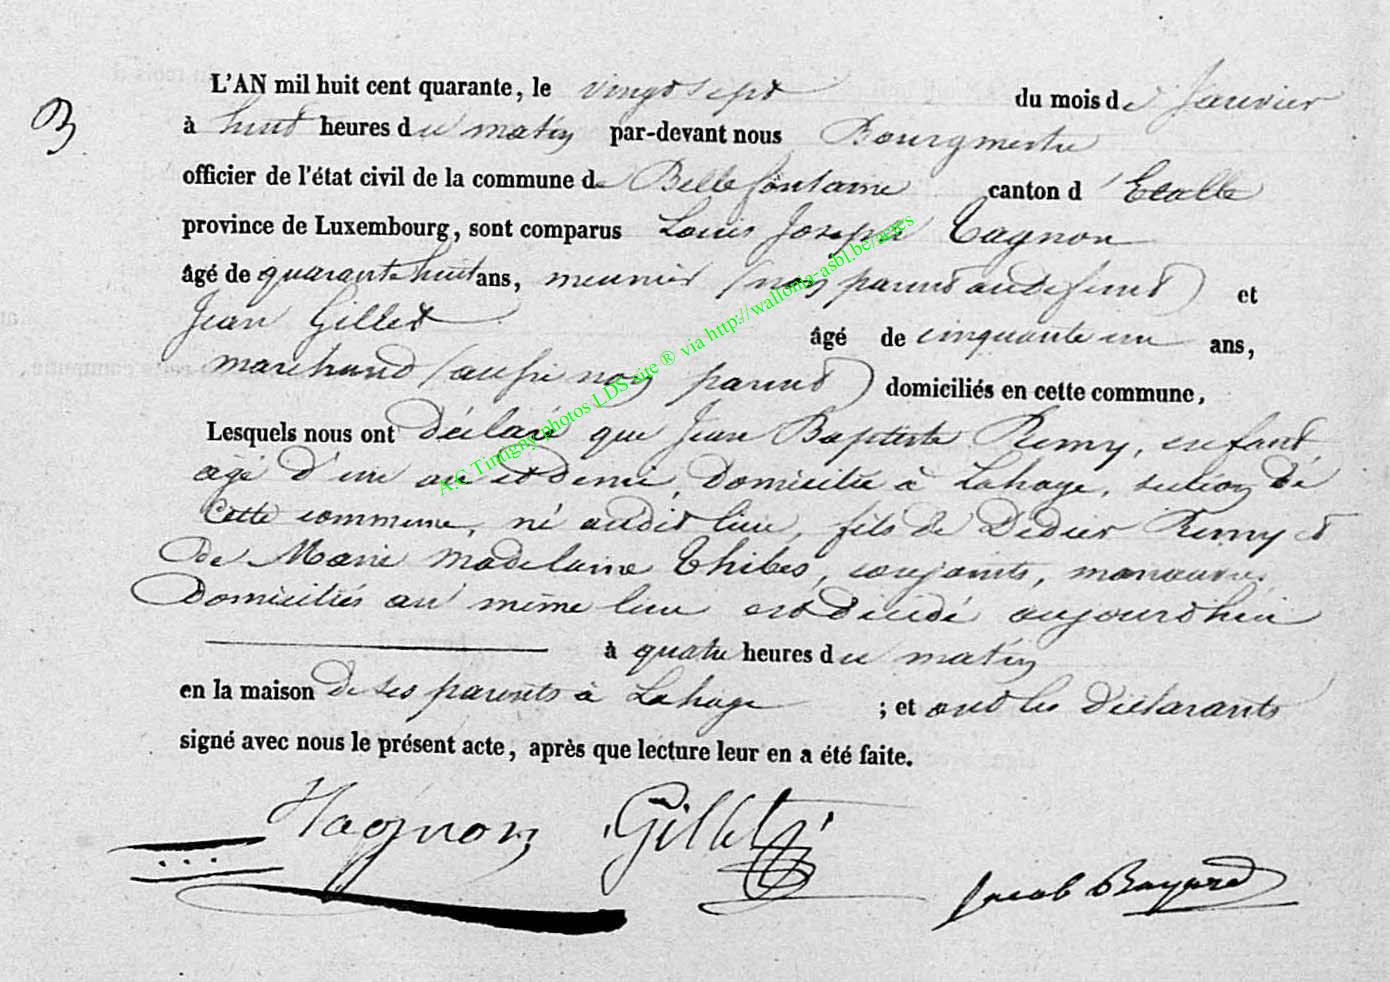 B
L'AN mil huit cent quarante, le vingt sept du mois de Janvier
à huit heures du matin par-devant nous Bourgmestre
officier de l'état civil de la commune de Bellefontaine canton d'Etalle
province de Luxembourg, sont comparus Louis Joseph Tagnon
âgé de quarante huit ans, meunier (non parent au défunt) et
Jean Gillet âgé de cinquante un ans,
marchand (aussi non parent) domiciliés en cette commune,
Lesquels nous ont déclaré que Jean Baptiste Remy, enfant,
agé d'un an et demi, domicilié à Lahage, section de
Cette commune, né audit lieu, fils de Didier Remy et
de Marie Madelaine Thibes, conjoints, manœuvres
Domiciliés au même lieu est décidé aujourd'hui
à quatre heures du matin
en la maison de ses parents à Lahage ; et ont les déclarants
signé avec nous le présent acte, après que lecture leur en a été faite.
Tagnon Gillet
Jacob Bayard
A.C Tintigny photos LDS site ® via http://wallonia-asbl.be/actes